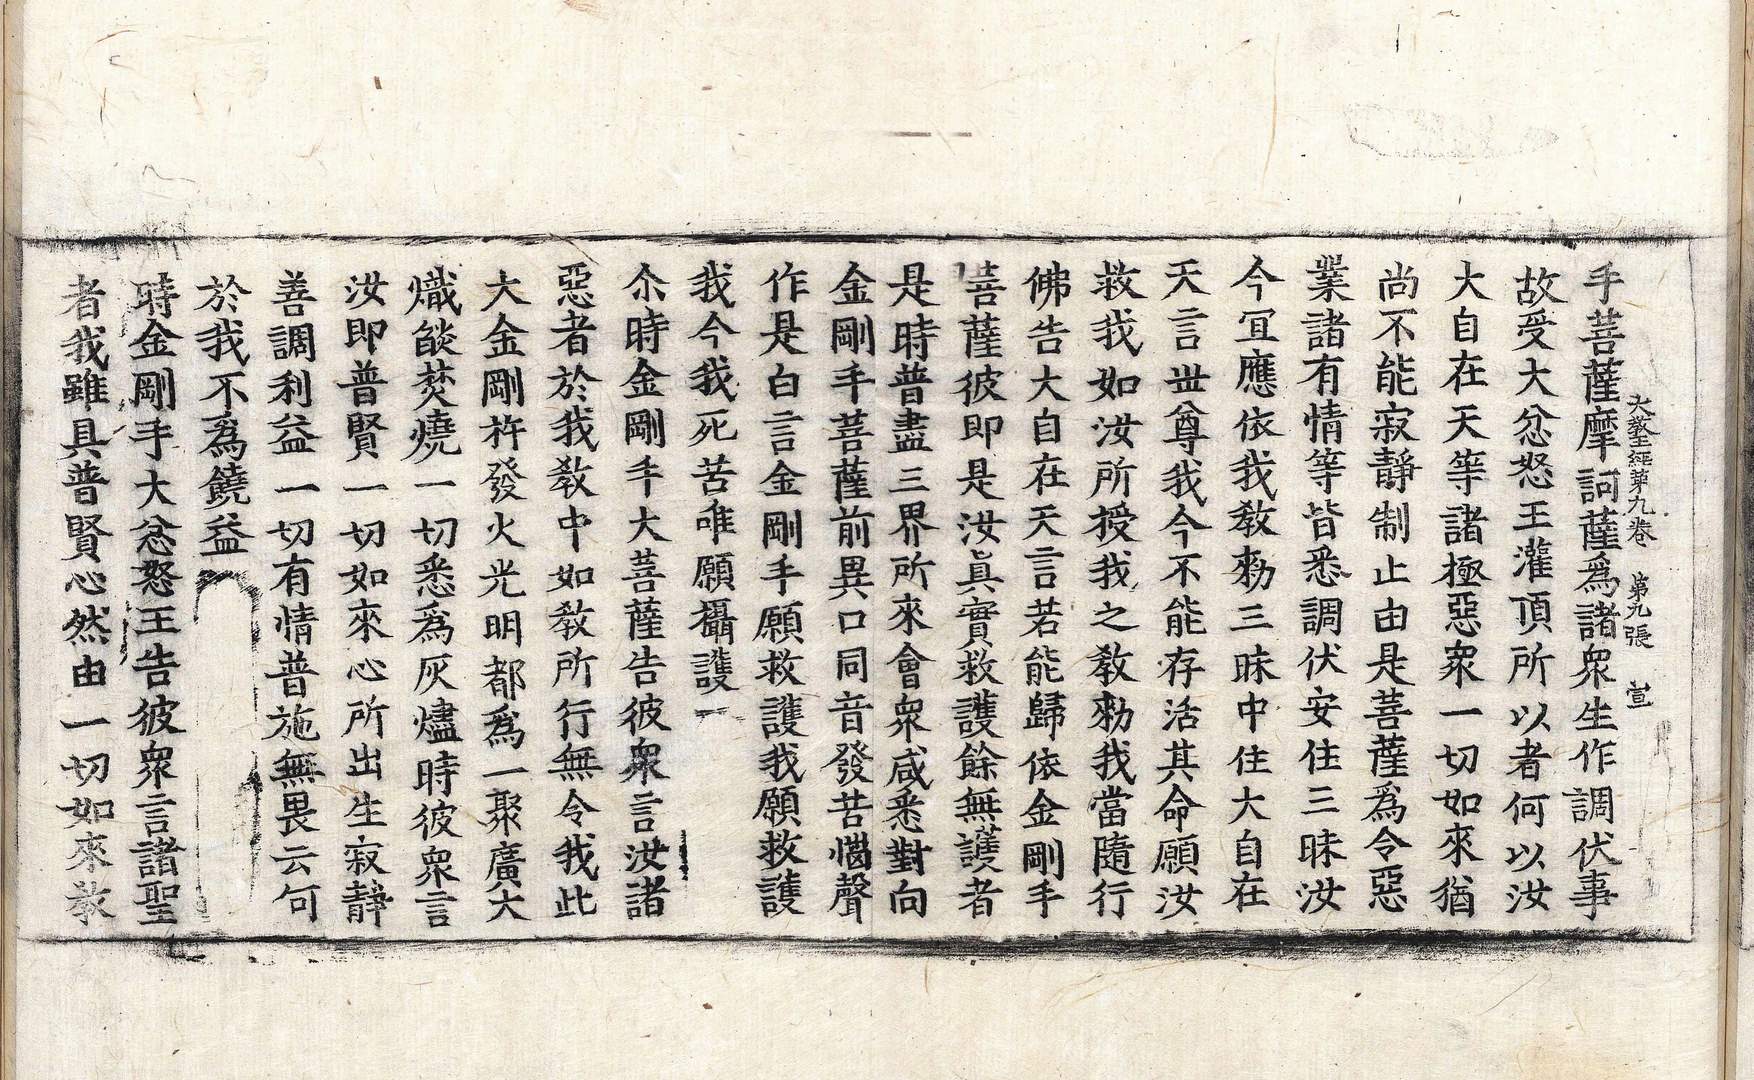 大教王經第九卷　第九張　宣
手菩薩摩訶薩爲諸衆生作調伏事
故受大忿怒王灌頂所以者何以汝
大自在天等諸極惡衆一切如來猶
尚不能寂靜制止由是菩薩爲令惡
業諸有情等皆悉調伏安住三昧汝
今冝應依我教勑三昧中住大自在
天言世尊我今不能存活其命願汝
救我如汝所授我之教勑我當隨行
佛告大自在天言若能歸依金剛手
菩薩彼即是汝眞實救護餘無護者
是時普盡三界所來會衆咸悉對向
金剛手菩薩前異口同音發苦惱聲
作是白言金剛手願救護我願救護
我今我死苦唯願攝護
尒時金剛手大菩薩告彼衆言汝諸
惡者於我教中如教所行無令我此
大金剛杵發火光明都爲一聚廣大
熾燄焚燒一切悉爲灰燼時彼衆言
汝即普賢一切如來心所出生寂靜
善調利益一切有情普施無畏云何
於我不爲饒益
時金剛手大忿怒王告彼衆言諸聖
者我雖具普賢心然由一切如來教